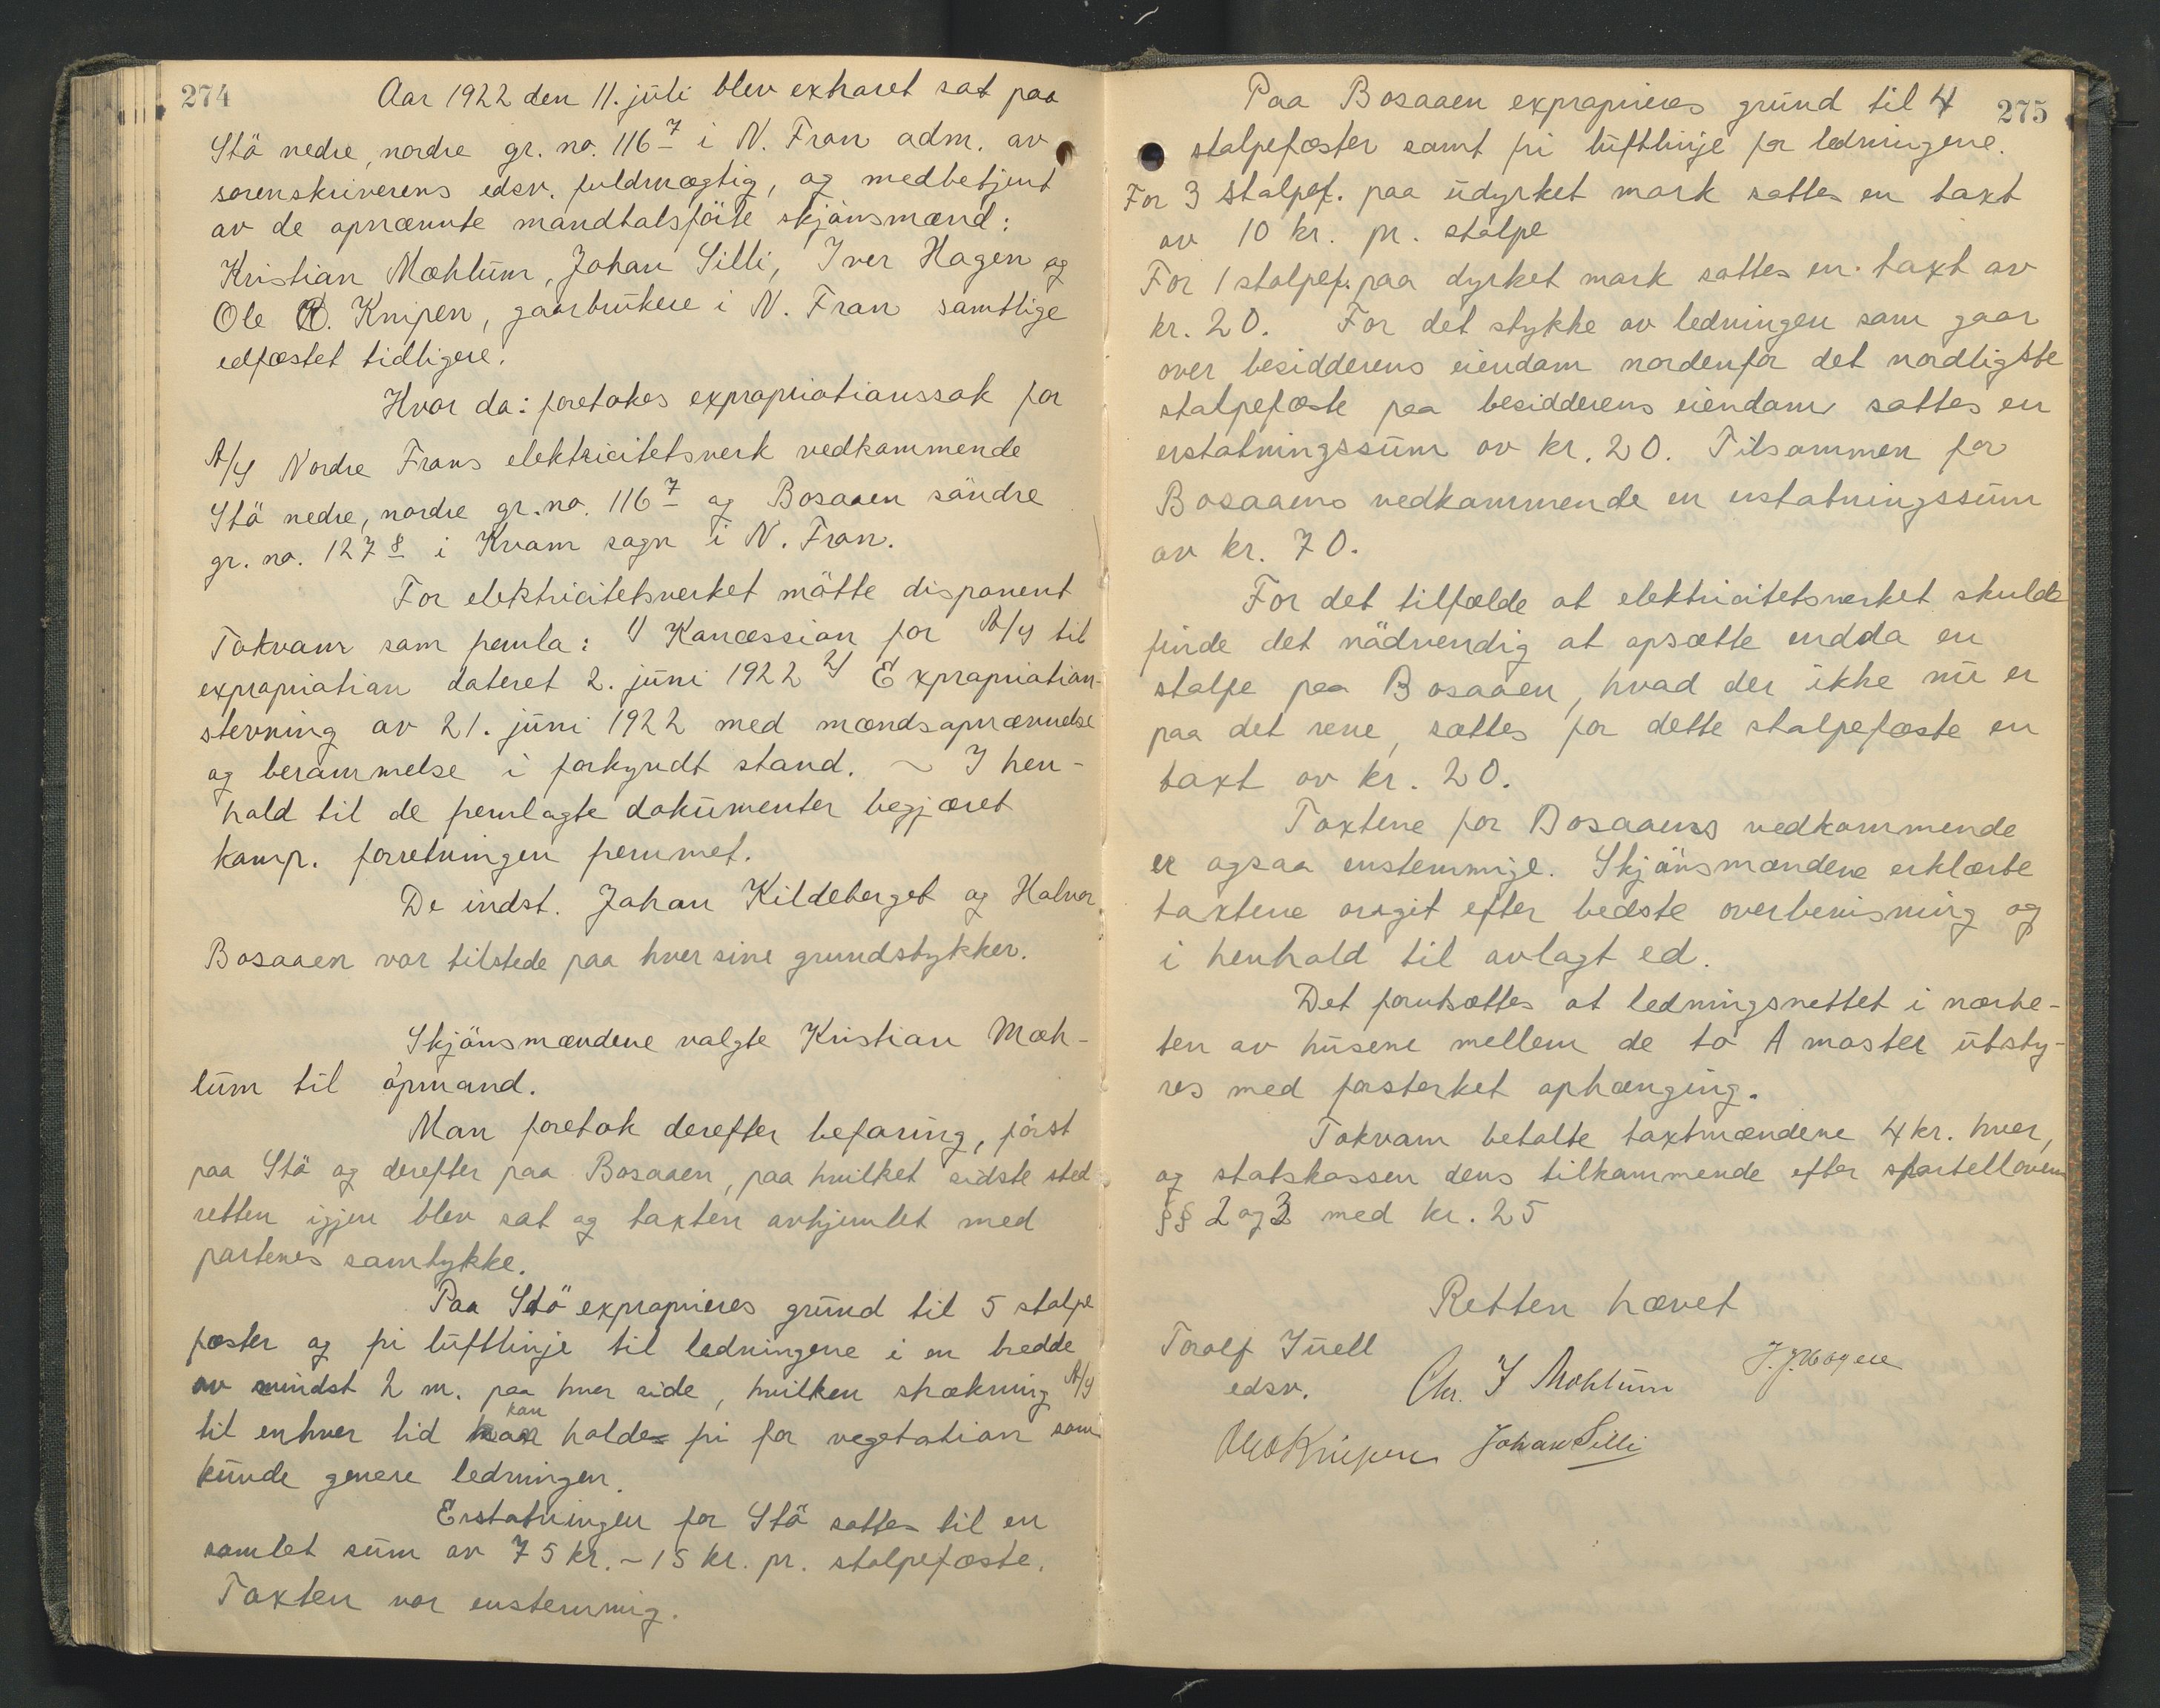 274
Aar 1922 den 11. juli blev extraret sat paa
Stö nedre, nordre gr. no. 116 7 i N. Fron adm. av
sorenskriverens edsv. fuldmægtig, og medbetjent
av de opnævnte mandtalsförte skjönsmænd:
Kristian Mæhlum, Johan Silli, Iver Hagen og
Ole O. Knipen, gaarbrukere i N. Fron samtlige
edfæstet tidligere.
Hvor da: foretokes expropriationssak for
A/S Nordre Frons elektricitetsverk vedkommende
Stö nedre, nordre gr. no. 116 7 og Bosaaen söndre
gr. no. 127 8 i Kvam sogn i N. Fron.
For elektricitetsverket mötte disponent
Tokvam som fremla: 1) Koncession for A/S til
expropriation dateret 2. juni 1922 2) Expropriation-
stevning av 21. juni 1922 med mændsopnævnelse
og berammelse i forkyndt stand. ~ I hen-
hold til de fremlagte dokumenter begjæret
komp. forretningen fremmet.
De indst. Johan Kildeberget og Halvor
Bosaaen var tilstede paa hver sine grundstykker.
Skjönsmændene valgte Kristian Mæh-
lum til opmand.
Man foretok derefter befaring, först
paa Stö og derefter paa Bosaaen, paa hvilket sidste sted
retten igjen blev sat og taxten avhjemlet med
partenes samtykke.
Paa Stö exproprieres grund til 5 stolpe
fæster og fri luftlinje til ledningene i en bredde
av mindst 2 m. paa hver side, hvilken strækning A/S
til enhver tid kan holde fri for vegetation som
kunde genere ledningen.
Erstatningen for Stö sattes til en
samlet sum av 75 kr. ~ 15 kr. pr. stolpefæste.
Taxten var enstemmig.
275
Paa Bosaaen exproprieres grund til 4
stolpefæster samt fri luftlinje for ledningene.
For 3 stolpef. paa udyrket mark sattes en taxt
av 10 kr. pr. stolpe
For 1 stolpef. paa dyrket mark sattes en taxt av
kr. 20. For det stykke av ledningen som gaar
over besidderens eiendom nordenfor det nordligste
stolpefæste paa besidderens eiendom sattes en
erstatningssum av kr. 20. Tilsammen for
Bosaaens vedkommende en erstatningssum
av kr. 70.
For det tilfælde at elektricitetsverket skulde
finde det nödvendig at opsætte endda en
stolpe paa Bosaaen, hvad der ikke nu er
paa det rene, sættes for dette stolpefæste en
taxt av kr. 20.
Taxtene for Bosaaens vedkommende
er ogsaa enstemmige. Skjönsmændene erklærte
taxtene avgit efter bedste overbevisning og
i henhold til avlagt ed.
Det forutsættes at ledningsnettet i nærhe-
ten av husene mellem de to A master utsty-
res med forsterket ophænging.
Tokvam betalte taxtmændene 4 kr. hver,
og statskassen dens tilkommende efter sportelloven
§§ 2 og 3 med kr. 25
Retten hævet
Torolf Juell
edsv.
Chr. J Mæhlum
J. J. Hagen
Ole O Knipen Johan Silli